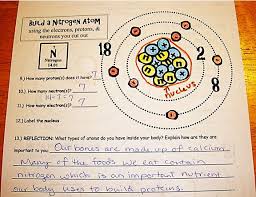 Build a Nitrogen Atom
using the electrons, protons, &
neutrons you cut out
18
2
8
N
Nitrogen
14.01
9.) How many protons does it have? 7
10.) How many neutrons? 7
14-7=7
11.) How many electrons? 7
12.) Label the nucleus
Nucleus
13.) REFLECTION: What types of atoms do you have inside your body? Explain how are they
important to you. Our bones are made up of calcium.
Many of the foods we eat contain
nitrogen which is an important nutrient
our body uses to build proteins.